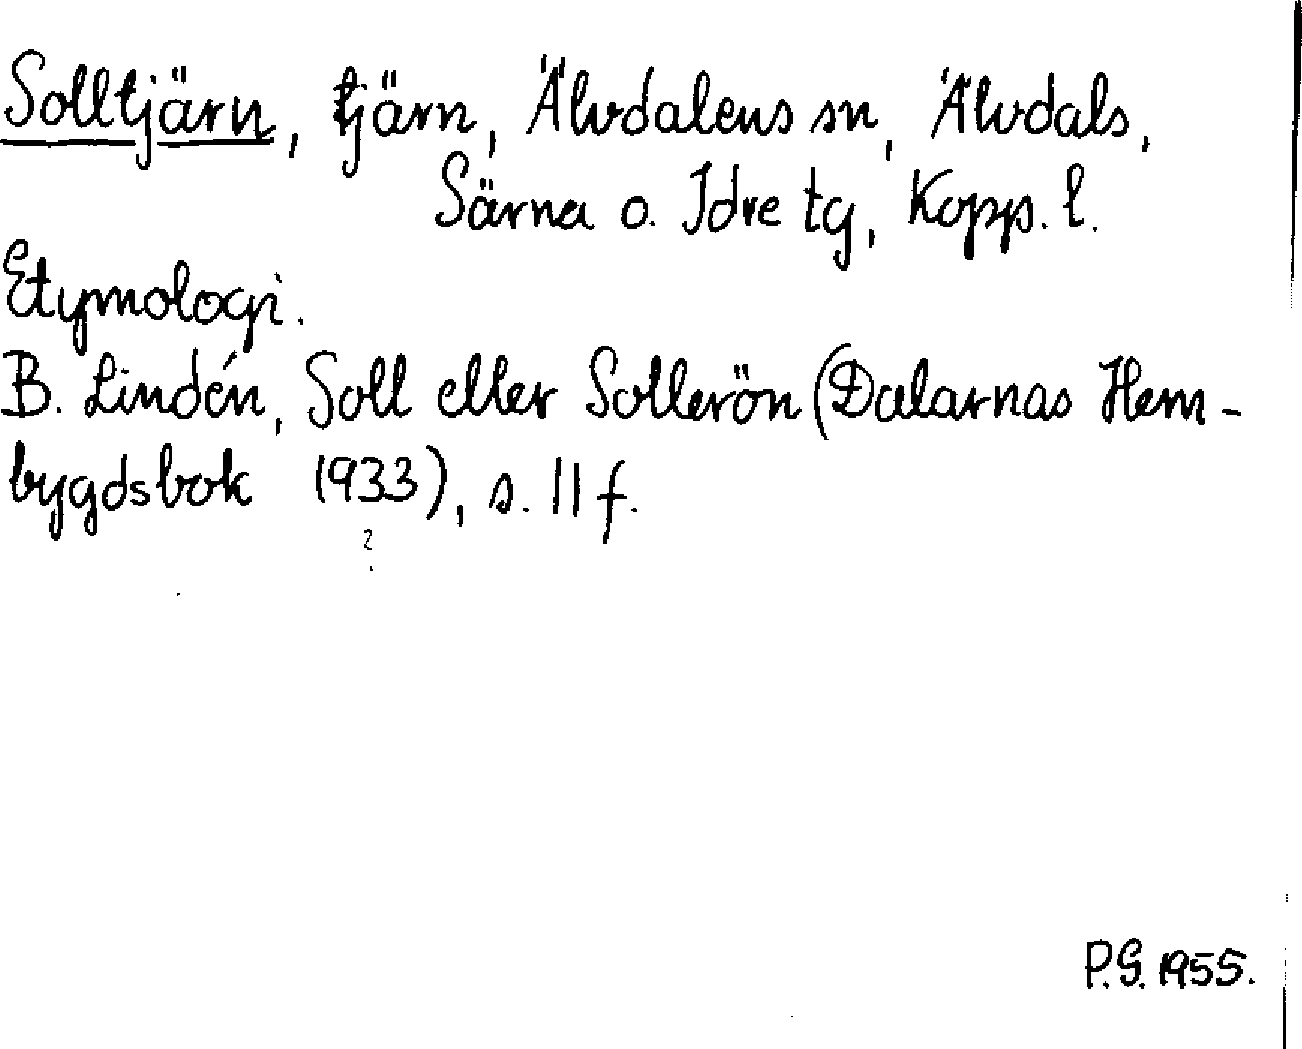 Solltjärn, tjärn, Älvdalens sn, Älvdals,
Särna o. Idre tg, Kopp. l.
Etymologi.
B. Lindén, Soll eller Sollerön (Dalarnas Hem-
bygdsbok 1933), s. 11 f.
?
P.G. 1955.